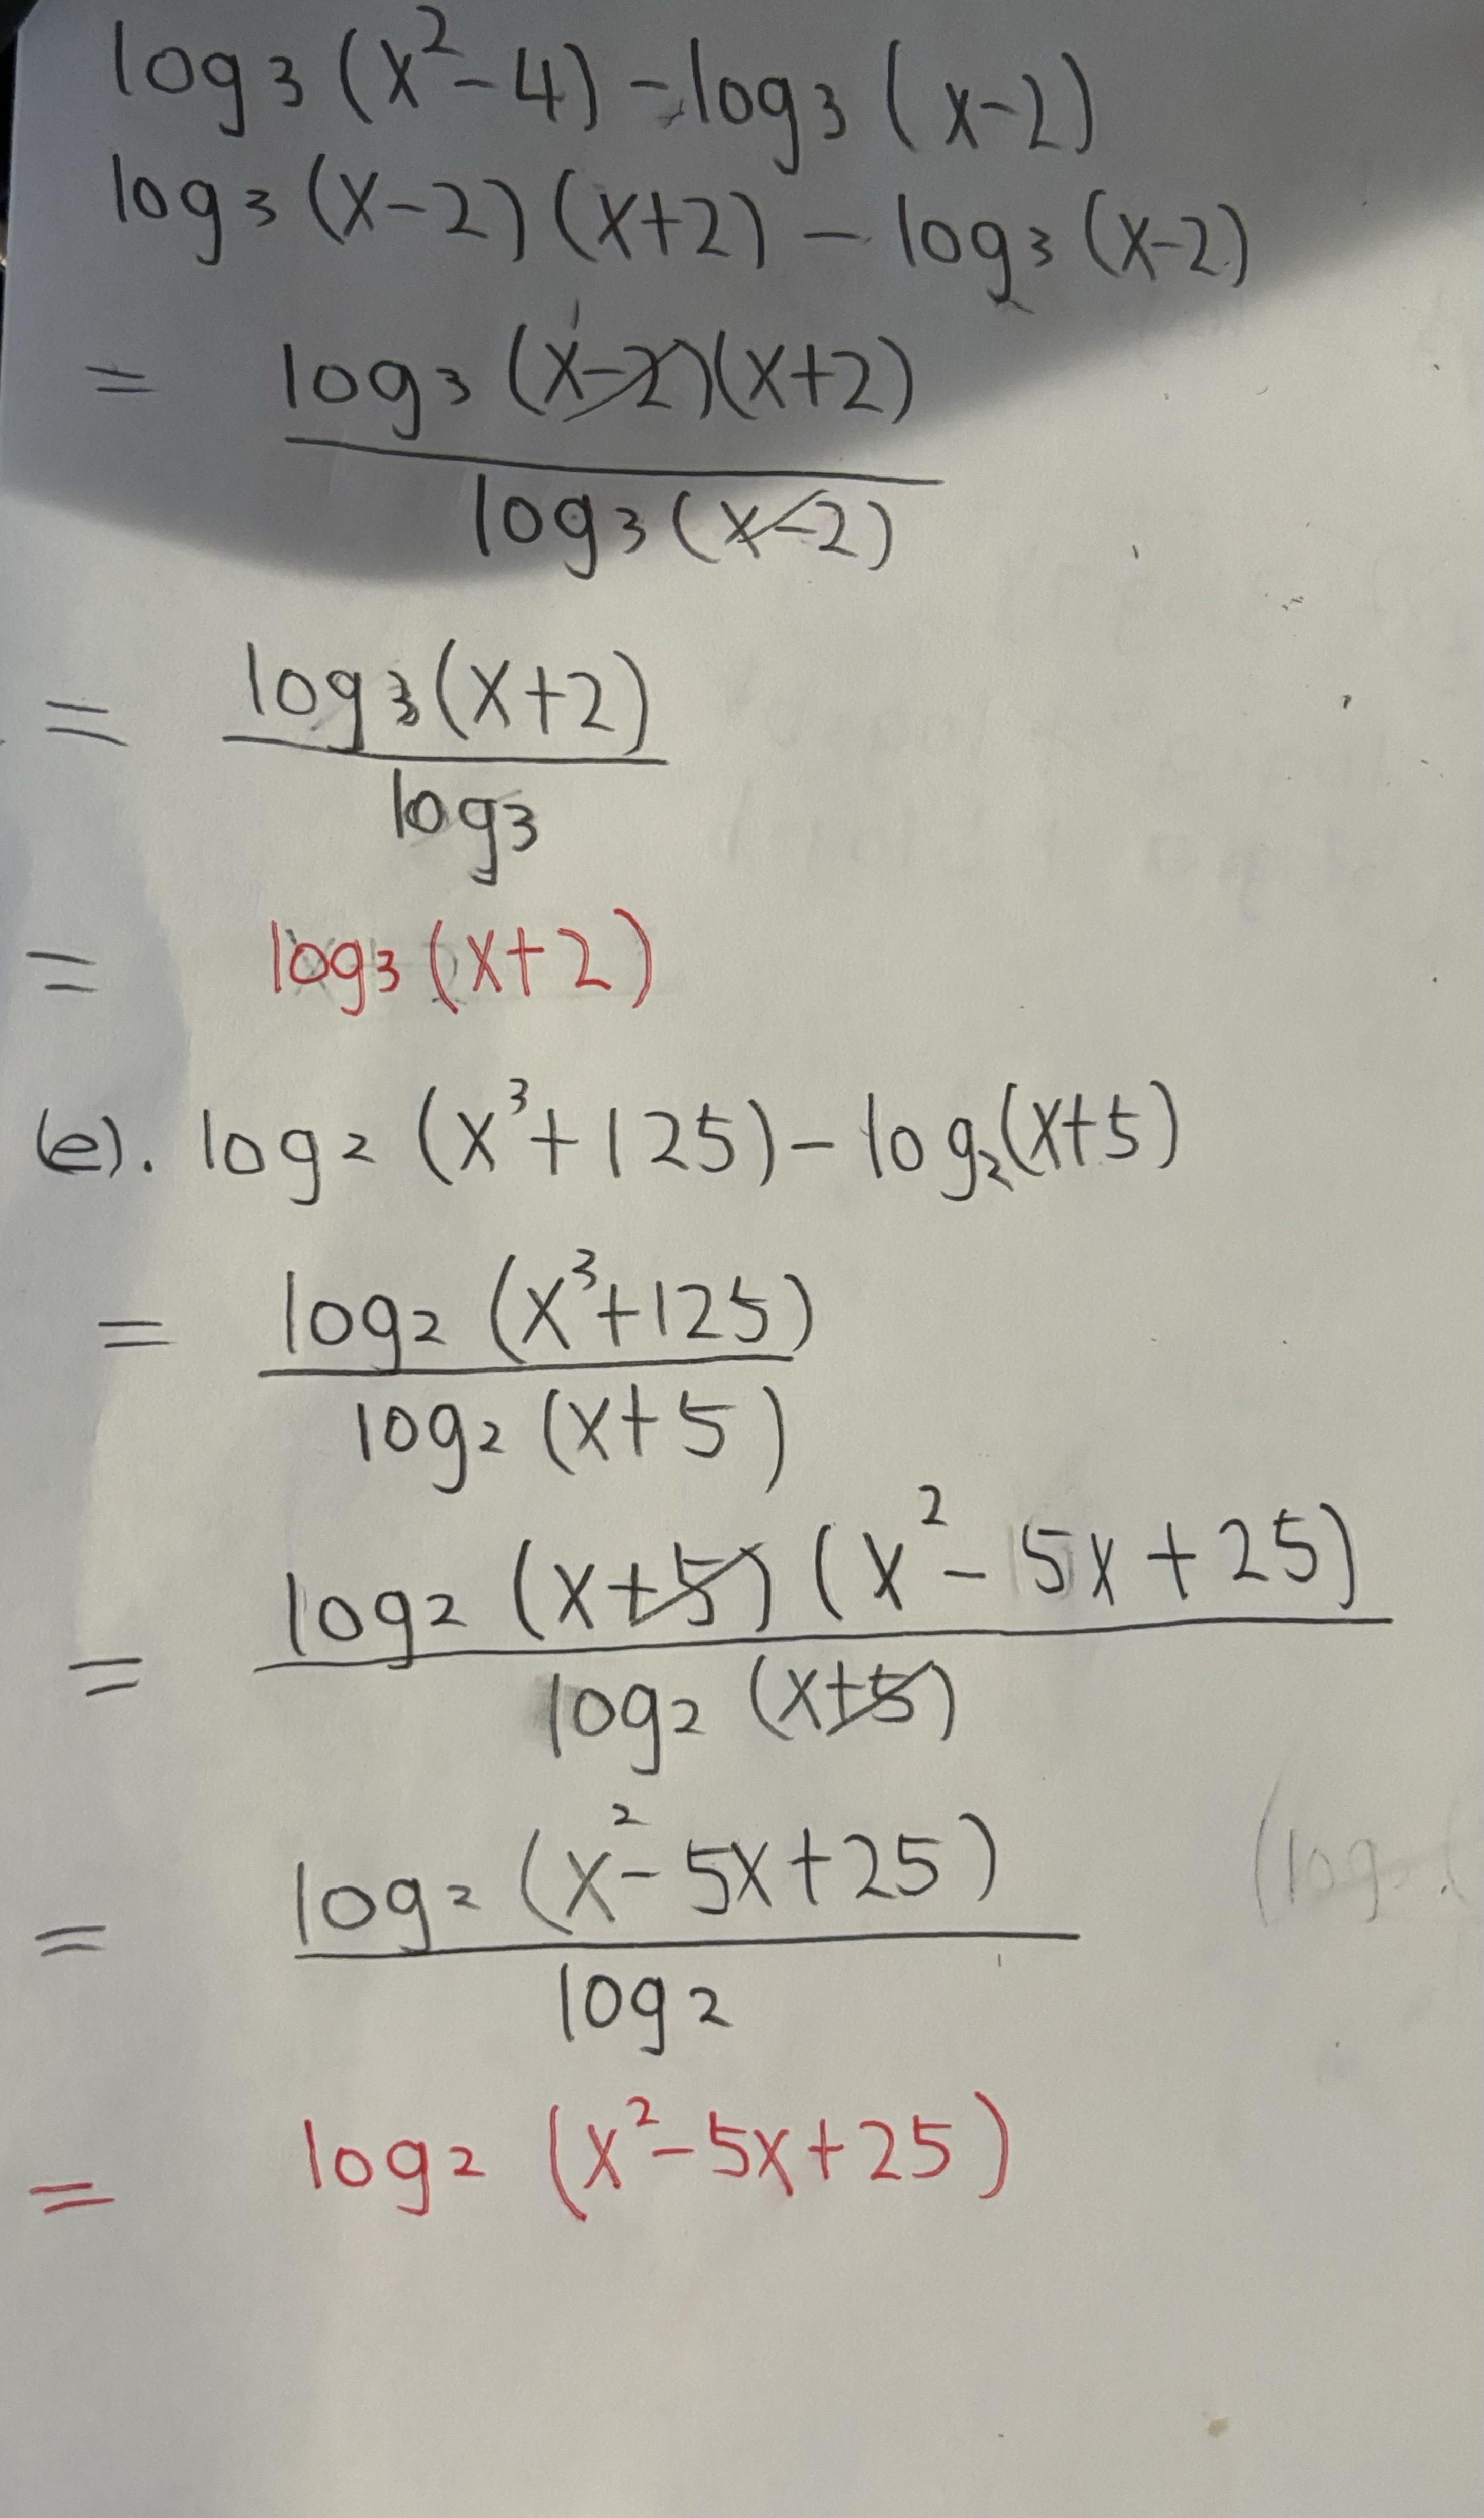 log₃(x²-4) - log₃(x-2)
log₃(x-2)(x+2) - log₃(x-2)
= log₃(x-2)(x+2)
log₃(x-2)
= log₃(x+2)
log₃
= log₃(x+2)
(e). log₂(x³+125) - log₂(x+5)
= log₂(x³+125)
log₂(x+5)
= log₂(x+5)(x²-5x+25)
log₂(x+5)
= log₂(x²-5x+25)
log₂
= log₂(x²-5x+25)